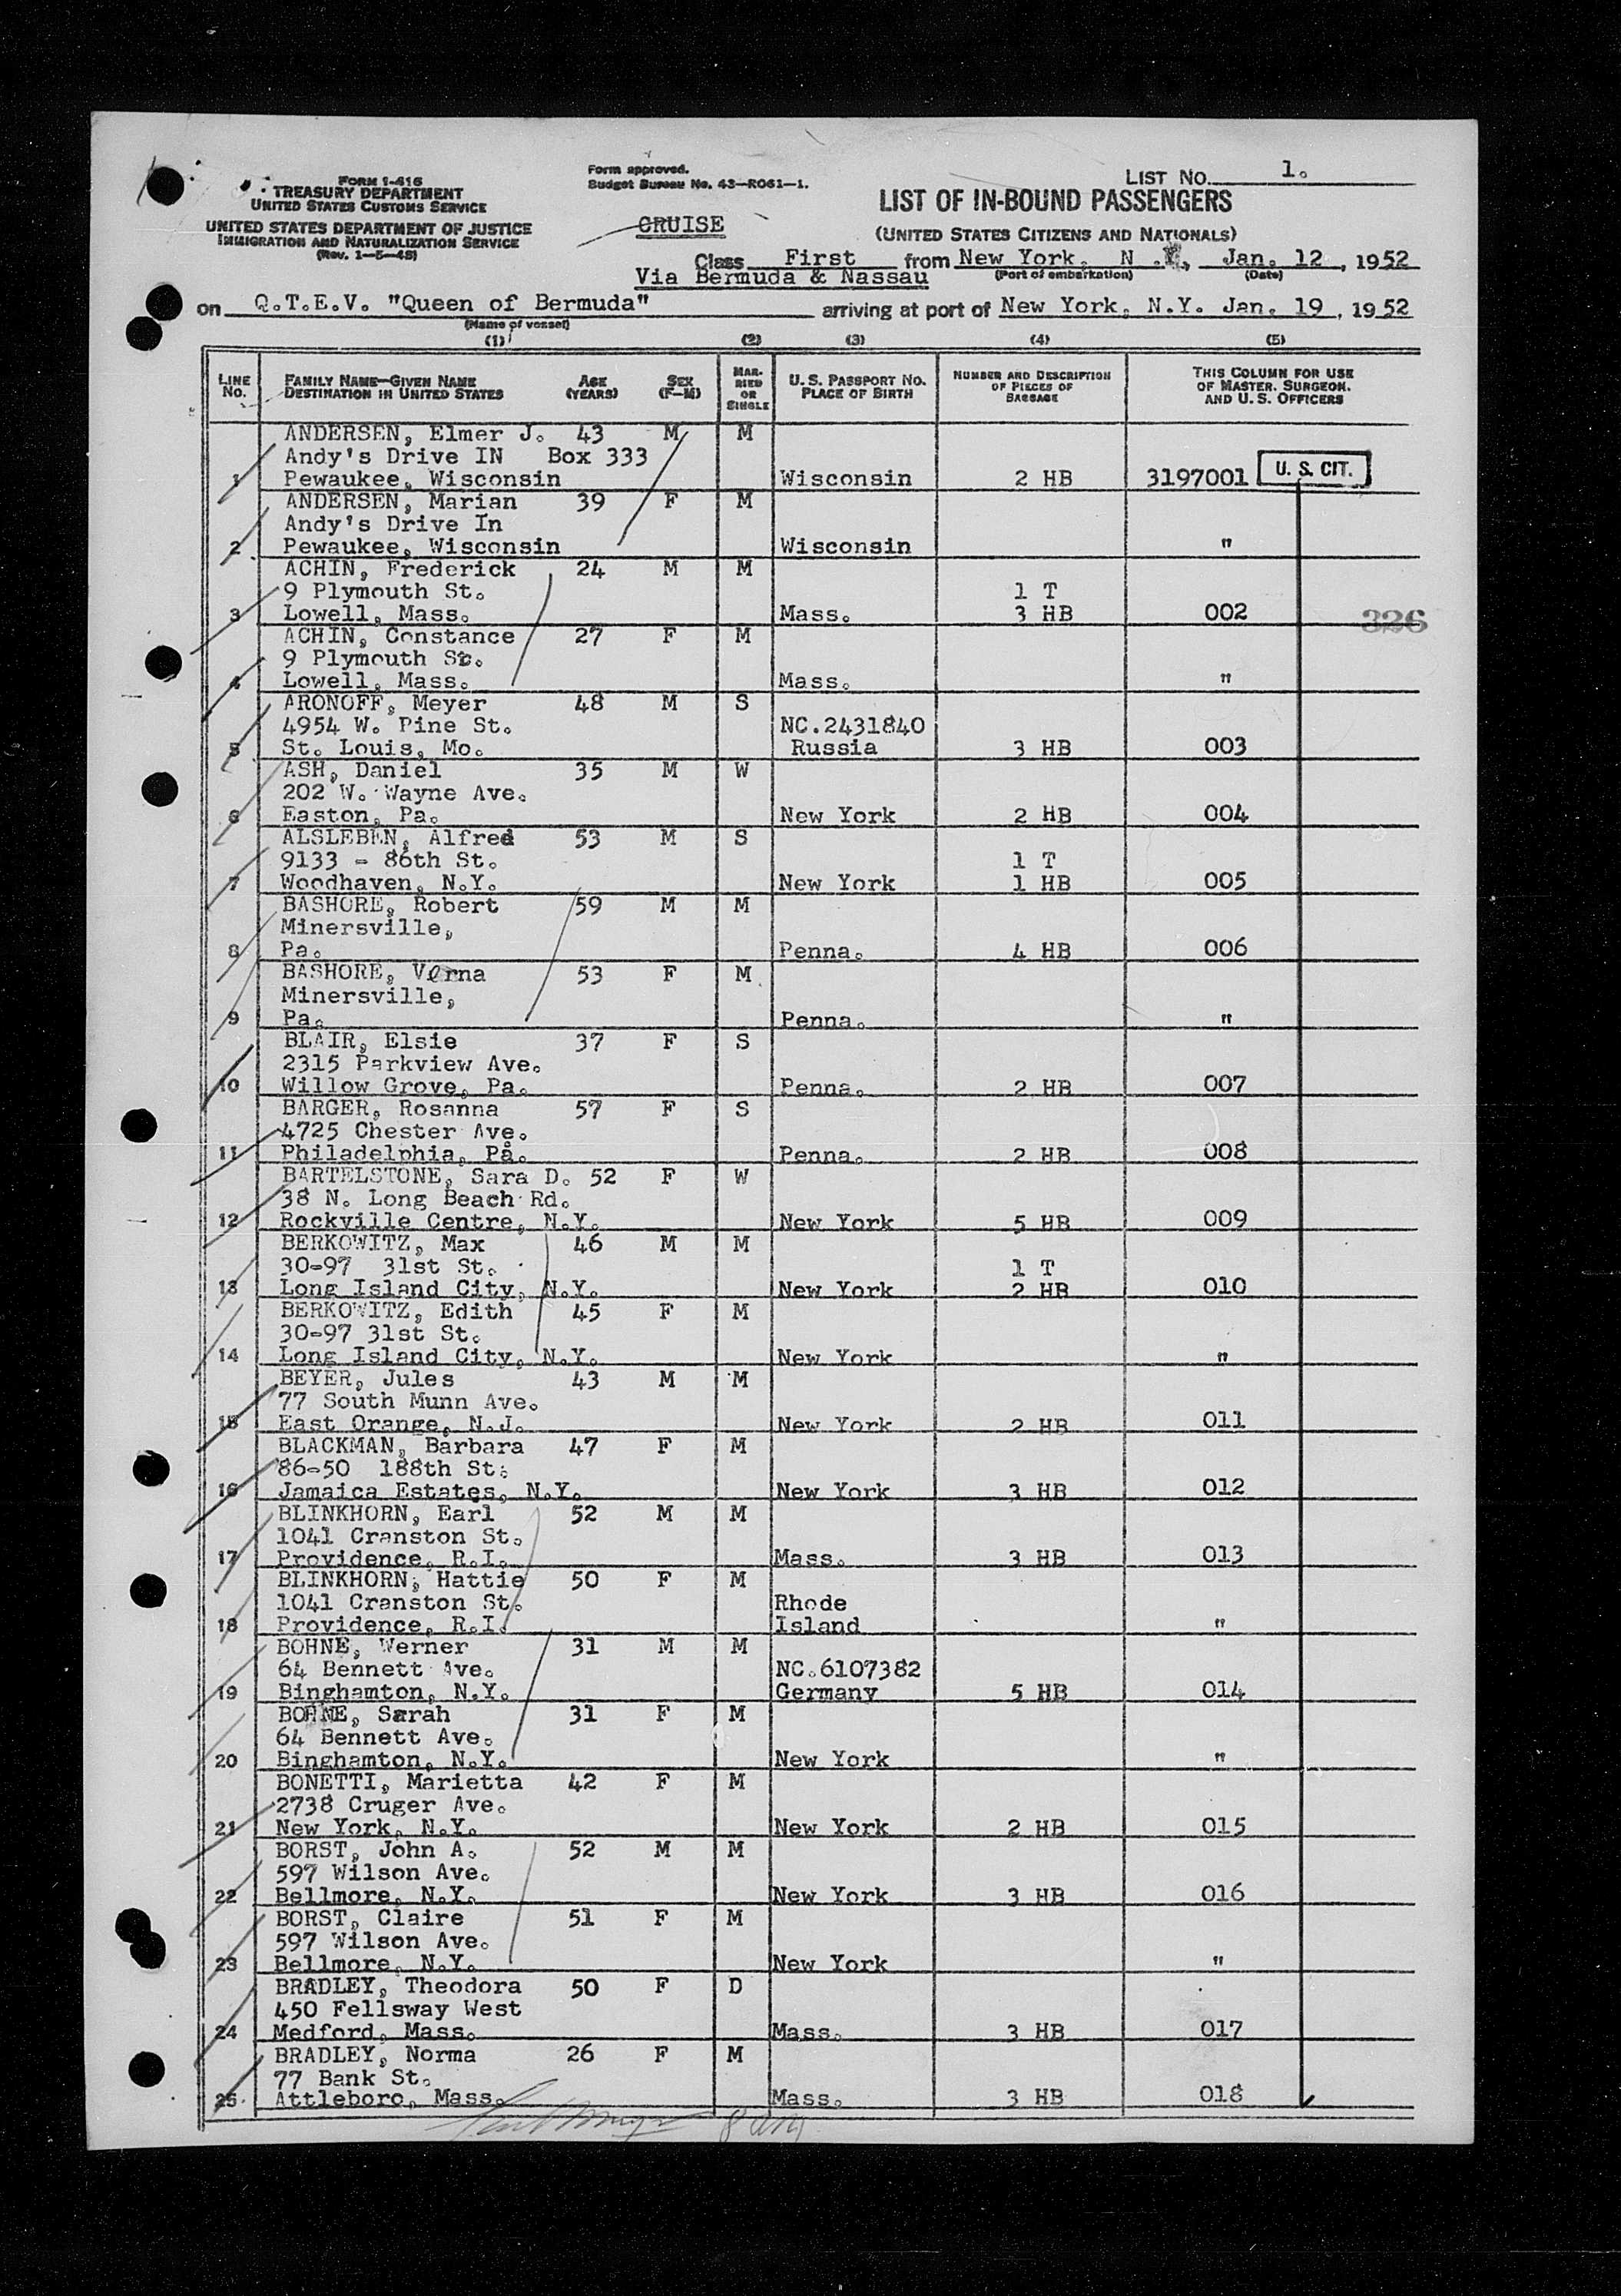 FORM I-416
TREASURY DEPARTMENT
UNITED STATES CUSTOMS SERVICE
UNITED STATES DEPARTMENT OF JUSTICE
IMMIGRATION AND NATURALIZATION SERVICE
(Rev. 1-5-48)
Form approved.
Budget Bureau No. 43-R061-1.
CRUISE
LIST NO. 1.
LIST OF IN-BOUND PASSENGERS
(UNITED STATES CITIZENS AND NATIONALS)
Class First from New York, N.Y., Jan. 12, 1952
Via Bermuda & Nassau (Port of embarkation) (Date)
on Q.T.E.V. "Queen of Bermuda" arriving at port of New York, N.Y. Jan. 19, 1952
(Name of vessel)
(1) (2) (3) (4) (5)
LINE No. FAMILY NAME—GIVEN NAME DESTINATION IN UNITED STATES AGE (YEARS) SEX (F-M) MARRIED OR SINGLE U. S. PASSPORT NO. PLACE OF BIRTH NUMBER AND DESCRIPTION OF PIECES OF BAGGAGE THIS COLUMN FOR USE OF MASTER, SURGEON, AND U. S. OFFICERS
ANDERSEN, Elmer J. 43 M M
Andy's Drive IN Box 333
1 Pewaukee, Wisconsin Wisconsin 2 HB 3197001 U. S. CIT.
ANDERSEN, Marian 39 F M
Andy's Drive In
2 Pewaukee, Wisconsin Wisconsin "
ACHIN, Frederick 24 M M
9 Plymouth St. 1 T
3 Lowell, Mass. Mass. 3 HB 002 326
ACHIN, Constance 27 F M
9 Plymouth St.
4 Lowell, Mass. Mass. "
ARONOFF, Meyer 48 M S
4954 W. Pine St. NC.2431840
5 St. Louis, Mo. Russia 3 HB 003
ASH, Daniel 35 M W
202 W. Wayne Ave.
6 Easton, Pa. New York 2 HB 004
ALSLEBEN, Alfred 53 M S
9133 - 86th St. 1 T
7 Woodhaven, N.Y. New York 1 HB 005
BASHORE, Robert 59 M M
Minersville,
8 Pa. Penna. 4 HB 006
BASHORE, Verna 53 F M
Minersville,
9 Pa. Penna. "
BLAIR, Elsie 37 F S
2315 Parkview Ave.
10 Willow Grove, Pa. Penna. 2 HB 007
BARGER, Rosanna 57 F S
4725 Chester Ave.
11 Philadelphia, Pa. Penna. 2 HB 008
BARTELSTONE, Sara D. 52 F W
38 N. Long Beach Rd.
12 Rockville Centre, N.Y. New York 5 HB 009
BERKOWITZ, Max 46 M M
30-97 31st St. 1 T
13 Long Island City, N.Y. New York 2 HB 010
BERKOWITZ, Edith 45 F M
30-97 31st St.
14 Long Island City, N.Y. New York "
BEYER, Jules 43 M M
77 South Munn Ave.
15 East Orange, N.J. New York 2 HB 011
BLACKMAN, Barbara 47 F M
86-50 188th St.
16 Jamaica Estates, N.Y. New York 3 HB 012
BLINKHORN, Earl 52 M M
1041 Cranston St.
17 Providence, R.I. Mass. 3 HB 013
BLINKHORN, Hattie 50 F M
1041 Cranston St. Rhode
18 Providence, R.I. Island "
BOHNE, Werner 31 M M
64 Bennett Ave. NC.6107382
19 Binghamton, N.Y. Germany 5 HB 014
BOHNE, Sarah 31 F M
64 Bennett Ave.
20 Binghamton, N.Y. New York "
BONETTI, Marietta 42 F M
2738 Cruger Ave.
21 New York, N.Y. New York 2 HB 015
BORST, John A. 52 M M
597 Wilson Ave.
22 Bellmore, N.Y. New York 3 HB 016
BORST, Claire 51 F M
597 Wilson Ave.
23 Bellmore, N.Y. New York "
BRADLEY, Theodora 50 F D
450 Fellsway West
24 Medford, Mass. Mass. 3 HB 017
BRADLEY, Norma 26 F M
77 Bank St.
25 Attleboro, Mass. Mass. 3 HB 018